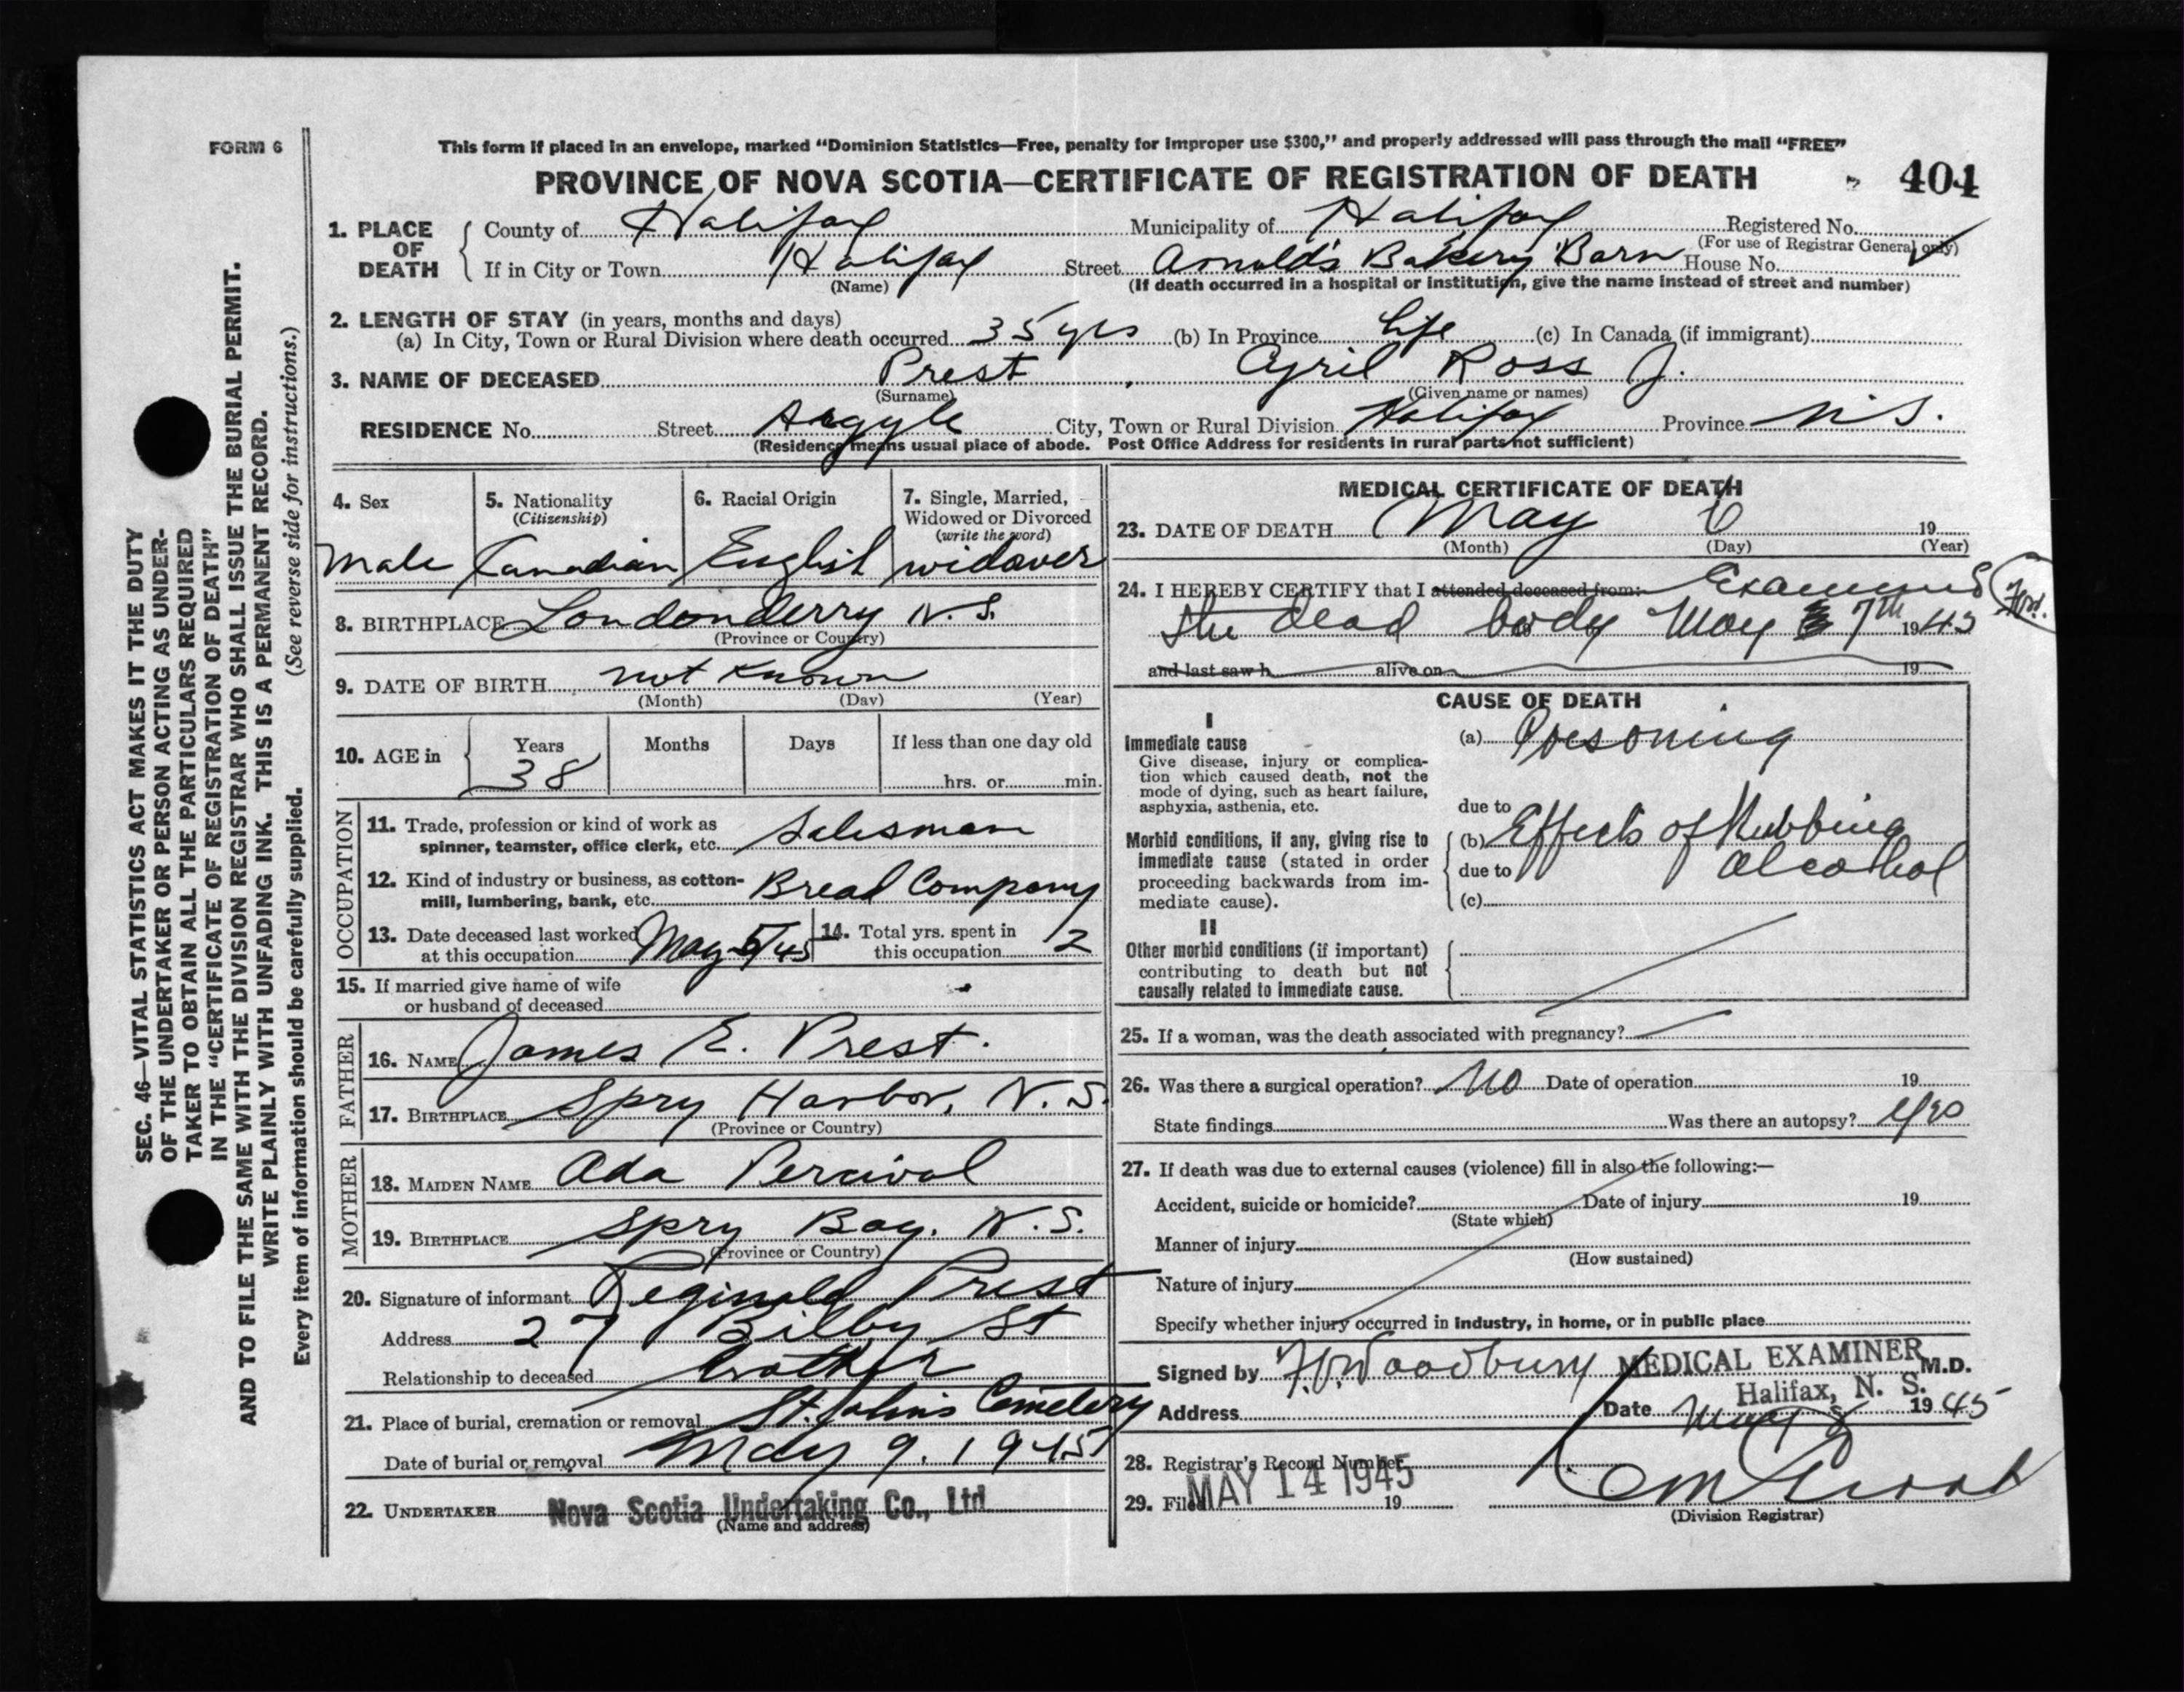 FORM 6
This form if placed in an envelope, marked “Dominion Statistics—Free, penalty for improper use $300,” and properly addressed will pass through the mail “FREE”
PROVINCE OF NOVA SCOTIA—CERTIFICATE OF REGISTRATION OF DEATH 404
1. PLACE OF DEATH County of Halifax Municipality of Halifax Registered No.
(For use of Registrar General only)
If in City or Town Halifax Street Arnold's Bakery Barn House No.
(Name) (If death occurred in a hospital or institution, give the name instead of street and number)
2. LENGTH OF STAY (in years, months and days)
(a) In City, Town or Rural Division where death occurred 35 yrs (b) In Province life (c) In Canada (if immigrant)
3. NAME OF DECEASED Prest, Cyril Ross J.
(Surname) (Given name or names)
RESIDENCE No. Street Argyle City, Town or Rural Division Halifax Province N.S.
(Residence means usual place of abode. Post Office Address for residents in rural parts not sufficient)
4. Sex
Male
5. Nationality
(Citizenship)
Canadian
6. Racial Origin
English
7. Single, Married,
Widowed or Divorced
(write the word)
widower
8. BIRTHPLACE Londonderry N.S.
(Province or Country)
9. DATE OF BIRTH not Known
(Month) (Day) (Year)
10. AGE in Years Months Days If less than one day old
38 hrs. or min.
OCCUPATION
11. Trade, profession or kind of work as
spinner, teamster, office clerk, etc. Salesman
12. Kind of industry or business, as cotton-
mill, lumbering, bank, etc. Bread Company
13. Date deceased last worked
at this occupation May 5/45
14. Total yrs. spent in
this occupation 12
15. If married give name of wife
or husband of deceased
FATHER
16. NAME James E. Prest.
17. BIRTHPLACE Spry Harbor, N.S.
(Province or Country)
MOTHER
18. MAIDEN NAME Ada Percival
19. BIRTHPLACE Spry Bay. N.S.
(Province or Country)
20. Signature of informant Reginald Prest
Address 27 Bilby St
Relationship to deceased brother
21. Place of burial, cremation or removal St. John's Cemetery
Date of burial or removal May 9. 1945
22. UNDERTAKER Nova Scotia Undertaking Co., Ltd
(Name and address)
MEDICAL CERTIFICATE OF DEATH
23. DATE OF DEATH May 6 19
(Month) (Day) (Year)
24. I HEREBY CERTIFY that I attended deceased from: Examined
the dead body May 7th 1945
and last saw h alive on 19
CAUSE OF DEATH
I
Immediate cause
Give disease, injury or complica-
tion which caused death, not the
mode of dying, such as heart failure,
asphyxia, asthenia, etc.
(a) Poisoning
due to
Morbid conditions, if any, giving rise to
immediate cause (stated in order
proceeding backwards from im-
mediate cause).
(b) Effects of Rubbing
due to alcohol
(c)
II
Other morbid conditions (if important)
contributing to death but not
causally related to immediate cause.
25. If a woman, was the death associated with pregnancy?
26. Was there a surgical operation? No Date of operation 19
State findings Was there an autopsy? yes
27. If death was due to external causes (violence) fill in also the following:—
Accident, suicide or homicide? Date of injury 19
(State which)
Manner of injury
(How sustained)
Nature of injury
Specify whether injury occurred in industry, in home, or in public place
Signed by Woodbury MEDICAL EXAMINER M.D.
Halifax, N. S.
Address Date May 8 1945
28. Registrar's Record Number
29. Filed MAY 14 1945 19
(Division Registrar)
SEC. 46—VITAL STATISTICS ACT MAKES IT THE DUTY
OF THE UNDERTAKER OR PERSON ACTING AS UNDER-
TAKER TO OBTAIN ALL THE PARTICULARS REQUIRED
IN THE “CERTIFICATE OF REGISTRATION OF DEATH”
AND TO FILE THE SAME WITH THE DIVISION REGISTRAR WHO SHALL ISSUE THE BURIAL PERMIT.
WRITE PLAINLY WITH UNFADING INK. THIS IS A PERMANENT RECORD.
Every item of information should be carefully supplied. (See reverse side for instructions.)